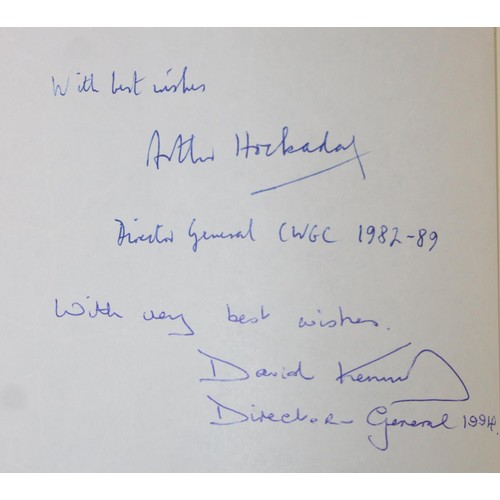 With best wishes
Arthur Hockaday
Director General CWGC 1982-89
With very best wishes.
David
Director General 1994.